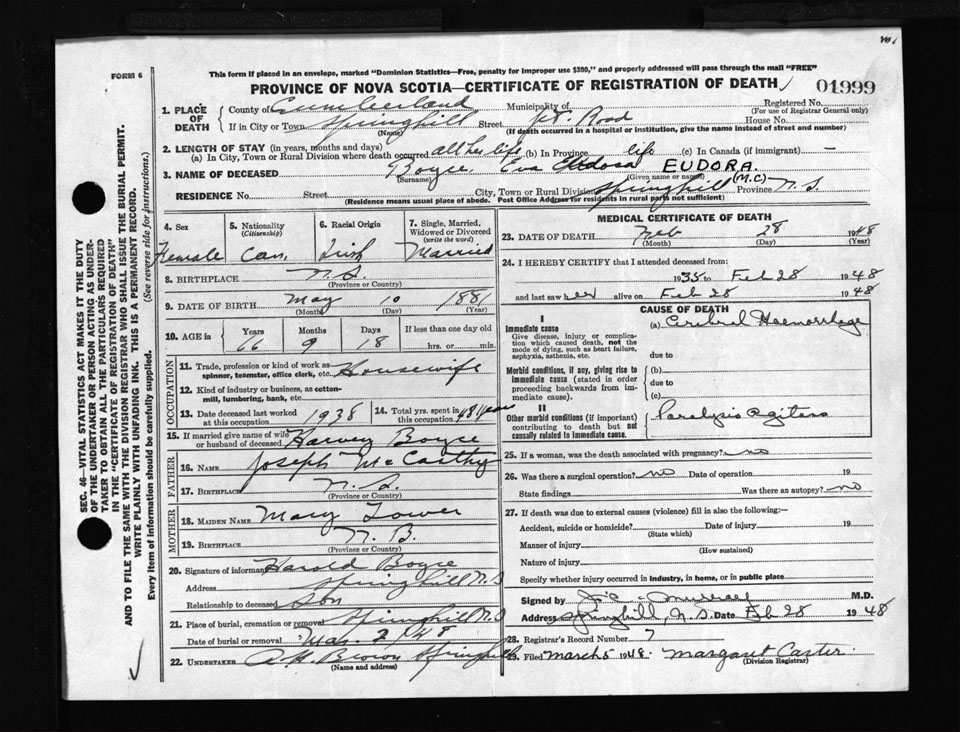 m.
FORM 6
This form if placed in an envelope, marked "Dominion Statistics—Free, penalty for improper use $300," and properly addressed will pass through the mail "FREE"
PROVINCE OF NOVA SCOTIA—CERTIFICATE OF REGISTRATION OF DEATH
01999
SEC. 46—VITAL STATISTICS ACT MAKES IT THE DUTY
OF THE UNDERTAKER OR PERSON ACTING AS UNDER-
TAKER TO OBTAIN ALL THE PARTICULARS REQUIRED
IN THE "CERTIFICATE OF REGISTRATION OF DEATH"
AND TO FILE THE SAME WITH THE DIVISION REGISTRAR WHO SHALL ISSUE THE BURIAL PERMIT.
WRITE PLAINLY WITH UNFADING INK. THIS IS A PERMANENT RECORD.
Every item of information should be carefully supplied. (See reverse side for instructions.)
1. PLACE OF DEATH County of Cumberland Municipality of Registered No.
(For use of Registrar General only)
If in City or Town Springhill Street Road House No.
(Name) (If death occurred in a hospital or institution, give the name instead of street and number)
2. LENGTH OF STAY (in years, months and days)
(a) In City, Town or Rural Division where death occurred all her life (b) In Province life (c) In Canada (if immigrant) —
3. NAME OF DECEASED Boyce Eva Eudora EUDORA (M.C)
(Surname) (Given name or names)
RESIDENCE No. Street City, Town or Rural Division Springhill Province N.S.
(Residence means usual place of abode. Post Office Address for residents in rural parts not sufficient)
4. Sex 5. Nationality (Citizenship) 6. Racial Origin 7. Single, Married, Widowed or Divorced (write the word)
Female Can Irish Married
8. BIRTHPLACE N.S.
(Province or Country)
9. DATE OF BIRTH May 10 1881
(Month) (Day) (Year)
10. AGE in Years Months Days If less than one day old
66 9 18 hrs. or min.
OCCUPATION
11. Trade, profession or kind of work as spinner, teamster, office clerk, etc. Housewife
12. Kind of industry or business, as cotton-mill, lumbering, bank, etc.
13. Date deceased last worked at this occupation 1938 14. Total yrs. spent in this occupation 48 years
15. If married give name of wife or husband of deceased Harvey Boyce
FATHER
16. NAME Joseph McCarthy
17. BIRTHPLACE N.S.
(Province or Country)
MOTHER
18. MAIDEN NAME Mary Tower
19. BIRTHPLACE N.B.
(Province or Country)
20. Signature of informant Harold Boyce
Address Springhill N.S
Relationship to deceased Son
21. Place of burial, cremation or removal Springhill N.S
Date of burial or removal Mar. 2 1948
22. UNDERTAKER A. H. Brown Springhill
(Name and address)
MEDICAL CERTIFICATE OF DEATH
23. DATE OF DEATH Feb 28 1948
(Month) (Day) (Year)
24. I HEREBY CERTIFY that I attended deceased from:
1935 to Feb 28 1948
and last saw her alive on Feb 28 1948
CAUSE OF DEATH
I
Immediate cause (a) Cerebral Haemorrhage
Give disease, injury or complication which caused death, not the mode of dying, such as heart failure, asphyxia, asthenia, etc.
due to
Morbid conditions, if any, giving rise to immediate cause (stated in order proceeding backwards from immediate cause).
(b)
due to
(c)
II
Other morbid conditions (if important) contributing to death but not causally related to immediate cause. Paralysis agitans
25. If a woman, was the death associated with pregnancy? no
26. Was there a surgical operation? no Date of operation 19
State findings Was there an autopsy? no
27. If death was due to external causes (violence) fill in also the following:—
Accident, suicide or homicide? Date of injury 19
(State which)
Manner of injury
(How sustained)
Nature of injury
Specify whether injury occurred in industry, in home, or in public place
Signed by M.D.
Address Springhill, N.S. Date Feb 28 1948
28. Registrar's Record Number 7
29. Filed March 5 1948. Margaret Carter
(Division Registrar)